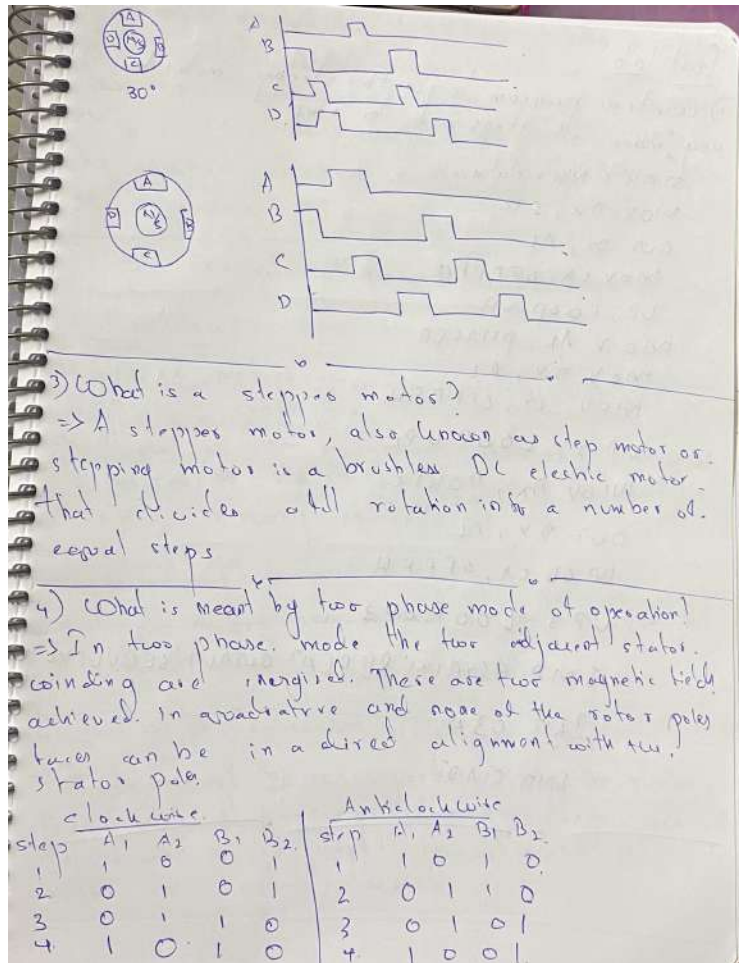 A
D N/S B
C
30°
A
B
C
D
A
D N/S B
C
A
B
C
D
3) What is a stepper motor?
=> A stepper motor, also known as step motor or
stepping motor is a brushless DC electric motor
that divides a full rotation into a number of
equal steps
4) What is meant by two phase mode of operation?
=> In two phase mode the two adjacent stator
winding are energised. There are two magnetic field
achieved in quadrature and none of the rotor poles
faces can be in a direct alignment with the
stator poles
clockwise Anticlockwise
step A1 A2 B1 B2 step A1 A2 B1 B2
1 1 0 0 1 1 1 0 1 0
2 0 1 0 1 2 0 1 1 0
3 0 1 1 0 3 0 1 0 1
4. 1 0 1 0 4. 1 0 0 1